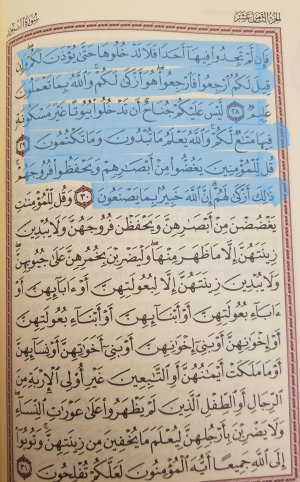 الجزء الثامن عشر سورة النور
فَإِن لَّمْ تَجِدُوا۟ فِيهَآ أَحَدًا فَلَا تَدْخُلُوهَا حَتَّىٰ يُؤْذَنَ لَكُمْ ۖ وَإِن
قِيلَ لَكُمُ ٱرْجِعُوا۟ فَٱرْجِعُوا۟ ۖ هُوَ أَزْكَىٰ لَكُمْ ۚ وَٱللَّهُ بِمَا تَعْمَلُونَ
عَلِيمٌ ٢٨ لَّيْسَ عَلَيْكُمْ جُنَاحٌ أَن تَدْخُلُوا۟ بُيُوتًا غَيْرَ مَسْكُونَةٍ
فِيهَا مَتَـٰعٌ لَّكُمْ ۚ وَٱللَّهُ يَعْلَمُ مَا تُبْدُونَ وَمَا تَكْتُمُونَ ٢٩
قُل لِّلْمُؤْمِنِينَ يَغُضُّوا۟ مِنْ أَبْصَـٰرِهِمْ وَيَحْفَظُوا۟ فُرُوجَهُمْ ۚ
ذَٰلِكَ أَزْكَىٰ لَهُمْ ۗ إِنَّ ٱللَّهَ خَبِيرٌۢ بِمَا يَصْنَعُونَ ٣٠ وَقُل لِّلْمُؤْمِنَـٰتِ
يَغْضُضْنَ مِنْ أَبْصَـٰرِهِنَّ وَيَحْفَظْنَ فُرُوجَهُنَّ وَلَا يُبْدِينَ
زِينَتَهُنَّ إِلَّا مَا ظَهَرَ مِنْهَا ۖ وَلْيَضْرِبْنَ بِخُمُرِهِنَّ عَلَىٰ جُيُوبِهِنَّ ۖ
وَلَا يُبْدِينَ زِينَتَهُنَّ إِلَّا لِبُعُولَتِهِنَّ أَوْ ءَابَآئِهِنَّ أَوْ
ءَابَآءِ بُعُولَتِهِنَّ أَوْ أَبْنَآئِهِنَّ أَوْ أَبْنَآءِ بُعُولَتِهِنَّ
أَوْ إِخْوَٰنِهِنَّ أَوْ بَنِىٓ إِخْوَٰنِهِنَّ أَوْ بَنِىٓ أَخَوَٰتِهِنَّ أَوْ نِسَآئِهِنَّ
أَوْ مَا مَلَكَتْ أَيْمَـٰنُهُنَّ أَوِ ٱلتَّـٰبِعِينَ غَيْرِ أُو۟لِى ٱلْإِرْبَةِ مِنَ
ٱلرِّجَالِ أَوِ ٱلطِّفْلِ ٱلَّذِينَ لَمْ يَظْهَرُوا۟ عَلَىٰ عَوْرَٰتِ ٱلنِّسَآءِ ۖ
وَلَا يَضْرِبْنَ بِأَرْجُلِهِنَّ لِيُعْلَمَ مَا يُخْفِينَ مِن زِينَتِهِنَّ ۚ وَتُوبُوٓا۟
إِلَى ٱللَّهِ جَمِيعًا أَيُّهَ ٱلْمُؤْمِنُونَ لَعَلَّكُمْ تُفْلِحُونَ ٣١